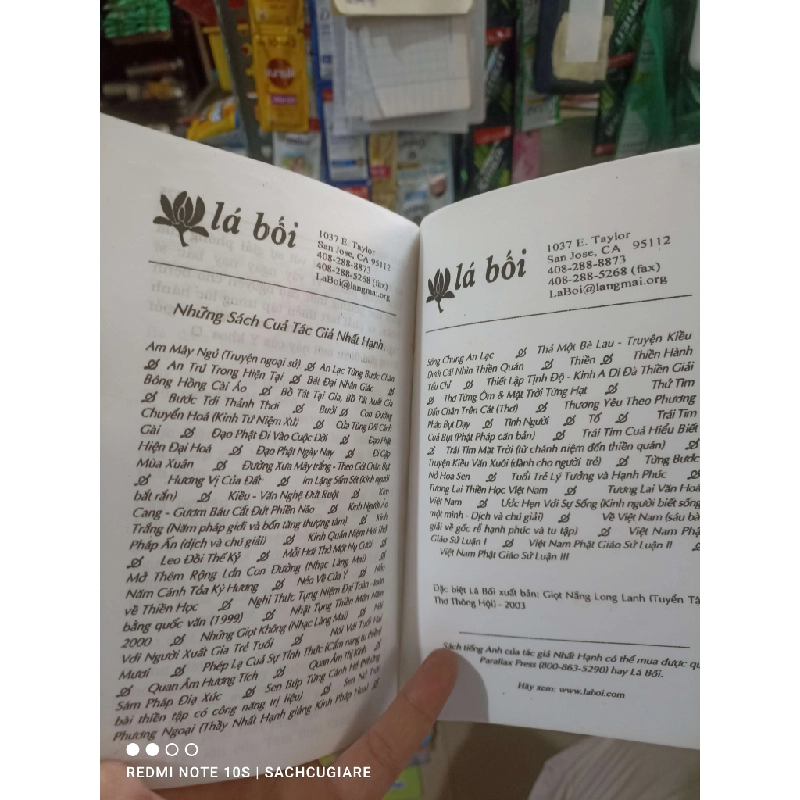 lá bối
1037 E. Taylor
San Jose, CA 95112
408-288-8873
408-288-5268 (fax)
LaBoi@langmai.org
Những Sách Cuả Tác Giả Nhất Hạnh
Am Mây Ngủ (Truyện ngoại sử) An Lạc Từng Bước Chân
An Trú Trong Hiện Tại Bát Đại Nhân Giác
Bông Hồng Cài Áo Bồ Tát Tại Gia, Bồ Tát Xuất Gia
Bước Tới Thảnh Thơi Bưởi Con Đường
Chuyển Hoá (Kinh Tứ Niệm Xứ) Của Từng Đối Cánh
Gài Đạo Phật Đi Vào Cuộc Đời Đạo Phật
Hiện Đại Hoá Đạo Phật Ngày Nay Đi Gặp
Mùa Xuân Đường Xưa Mây Trắng - Theo Gót Chân Bụt
Hương Vị Của Đất Im Lặng Sấm Sét (Kinh người
bắt rắn) Kiều - Văn Nghệ Đứt Ruột Kim
Cang - Gươm Báu Cắt Đứt Phiền Não Kinh Người Áo
Trắng (Năm pháp giới và bốn tăng thượng tâm) Kinh
Pháp Ấn (dịch và chú giải) Kinh Quán Niệm Hơi Thở
Leo Đồi Thế Kỷ Mỗi Hơi Thở Một Nụ Cười
Mở Thêm Rộng Lớn Con Đường (Nhạc Làng Mai) Nẻo
Năm Cánh Tỏa Ký Hương Nẻo Về Của Ý Nói
về Thiền Học Nghi Thức Tụng Niệm Đại Toàn - toàn
bằng quốc văn (1999) Nhật Tụng Thiền Môn Năm
2000 Những Giọt Không (Nhạc Làng Mai) Nói
Với Người Xuất Gia Trẻ Tuổi Nói Với Tuổi Hai
Mươi Phép Lạ Cuả Sự Tỉnh Thức (Cẩm nang tu thiền)
Quan Âm Hương Tích Quan Âm Thị Kính
Sám Pháp Địa Xúc Sen Búp Từng Cánh Hé (Những
bài thiền tập có công năng trị liệu) Sen Nở Trời
Phương Ngoại (Thầy Nhất Hạnh giảng Kinh Pháp Hoa)
lá bối
1037 E. Taylor
San Jose, CA 95112
408-288-8873
408-288-5268 (fax)
LaBoi@langmai.org
Sống Chung An Lạc Thả Một Bè Lau - Truyện Kiều
Dưới Cái Nhìn Thiền Quán Thiền Thiền Hành
Yếu Chỉ Thiết Lập Tịnh Độ - Kinh A Di Đà Thiền Giải
Thơ Từng Ôm & Mặt Trời Từng Hạt Thử Tìm
Dấu Chân Trên Cát (Thơ) Thương Yêu Theo Phương
Pháp Bụt Dạy Tình Người Tố Trái Tim
Cuả Bụt (Phật Pháp căn bản) Trái Tim Cuả Hiểu Biết
Trái Tim Mặt Trời (từ chánh niệm đến thiền quán)
Truyện Kiều Văn Xuôi (dành cho người trẻ) Từng Bước
Nở Hoa Sen Tuổi Trẻ Lý Tưởng và Hạnh Phúc
Tương Lai Thiền Học Việt Nam Tương Lai Văn Hoá
Việt Nam Ước Hẹn Với Sự Sống (Kinh người biết sống
một mình - Dịch và chú giải) Về Việt Nam (sáu bài
giải về gốc rễ hạnh phúc và tu tập) Việt Nam Phật
Giáo Sử Luận I Việt Nam Phật Giáo Sử Luận II
Việt Nam Phật Giáo Sử Luận III
Đặc biệt Lá Bối xuất bản: Giọt Nắng Long Lanh (Tuyển Tập
Thơ Thông Hội) - 2003
Sách tiếng Anh của tác giả Nhất Hạnh có thể mua được qu
Parallax Press (800-863-5290) hay Lá Bối.
Hãy xem: www.laboi.com
REDMI NOTE 10S | SACHCUGIARE